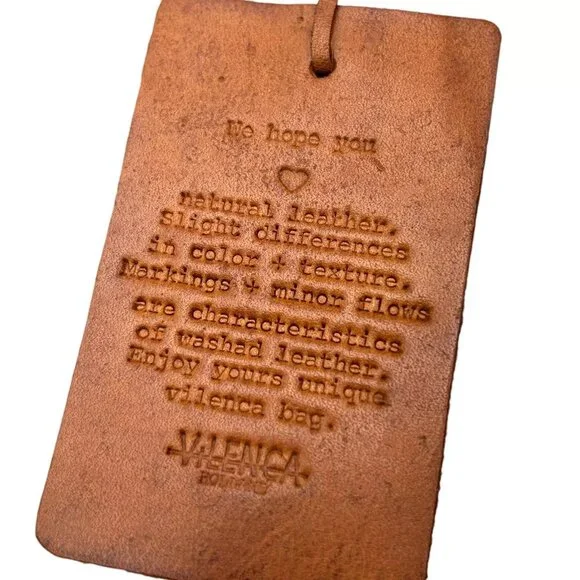 We hope you
♡
natural leather.
Slight differences
in color + texture.
Markings + minor flows
are characteristics
of washad leather.
Enjoy yours unique
vilenca bag.
ViLENCA
HOLLAND